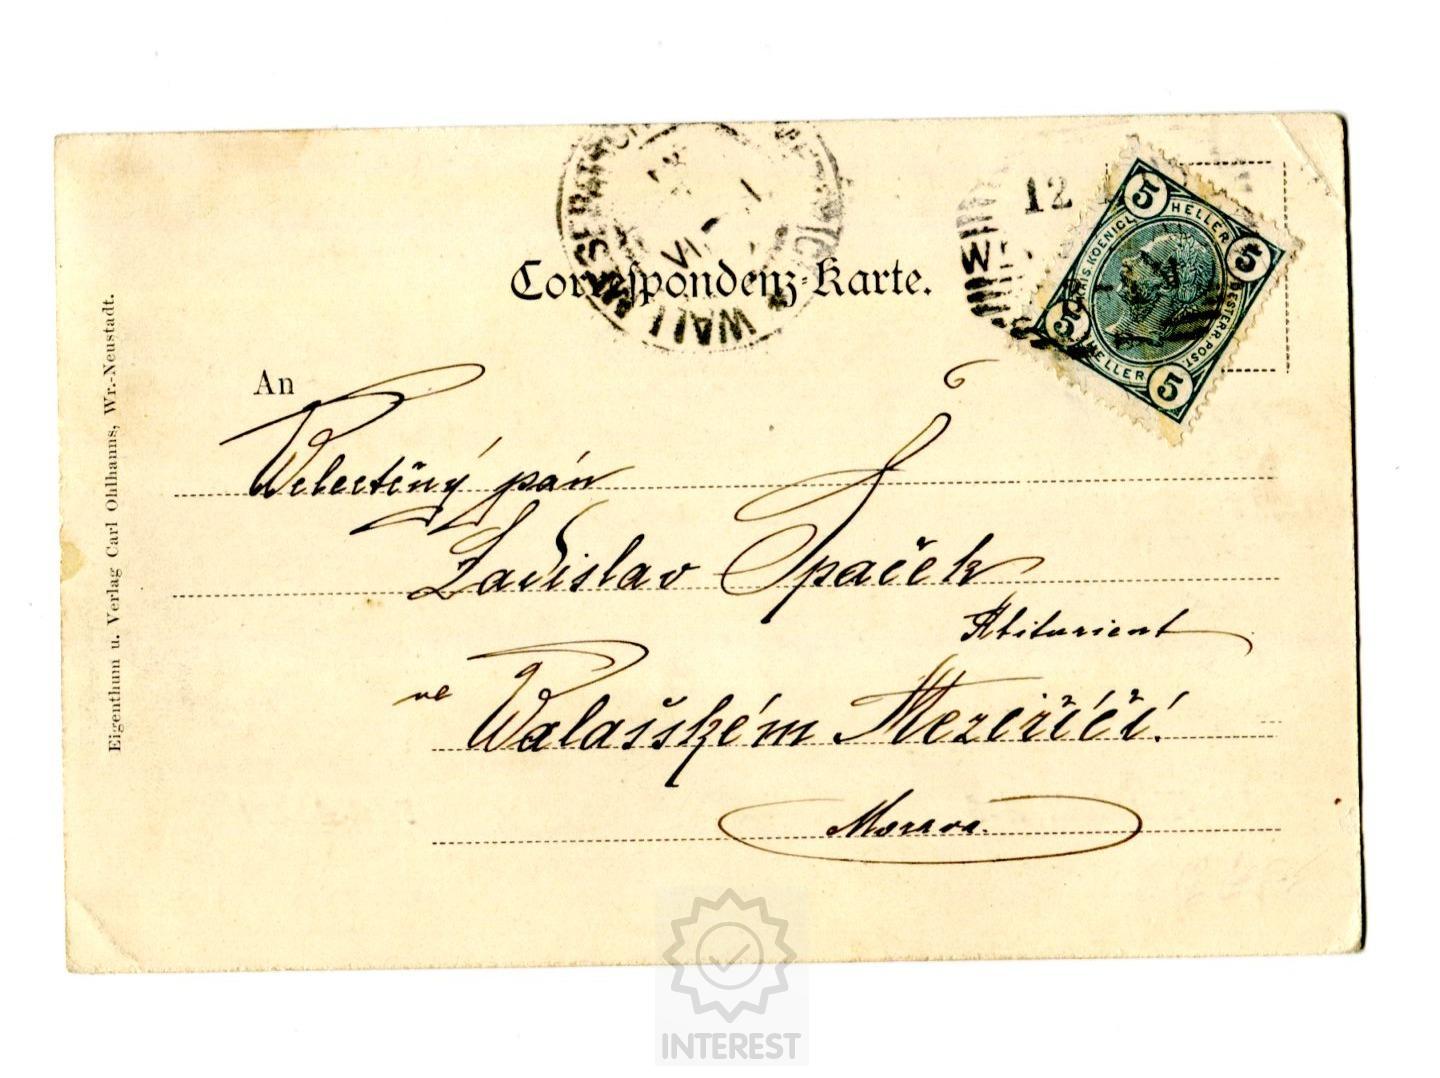 Correspondenz-Karte.
12
5 HELLER 5
KAIS. KOENIGL.
OESTERR. POST.
5 HELLER 5
An
Velectěný pán
Ladislav Spaček
Abiturient
ve
Valašském Meziříčí.
Morava.
Eigenthum u. Verlag Carl Ohlhanns, Wr.-Neustadt.
INTEREST